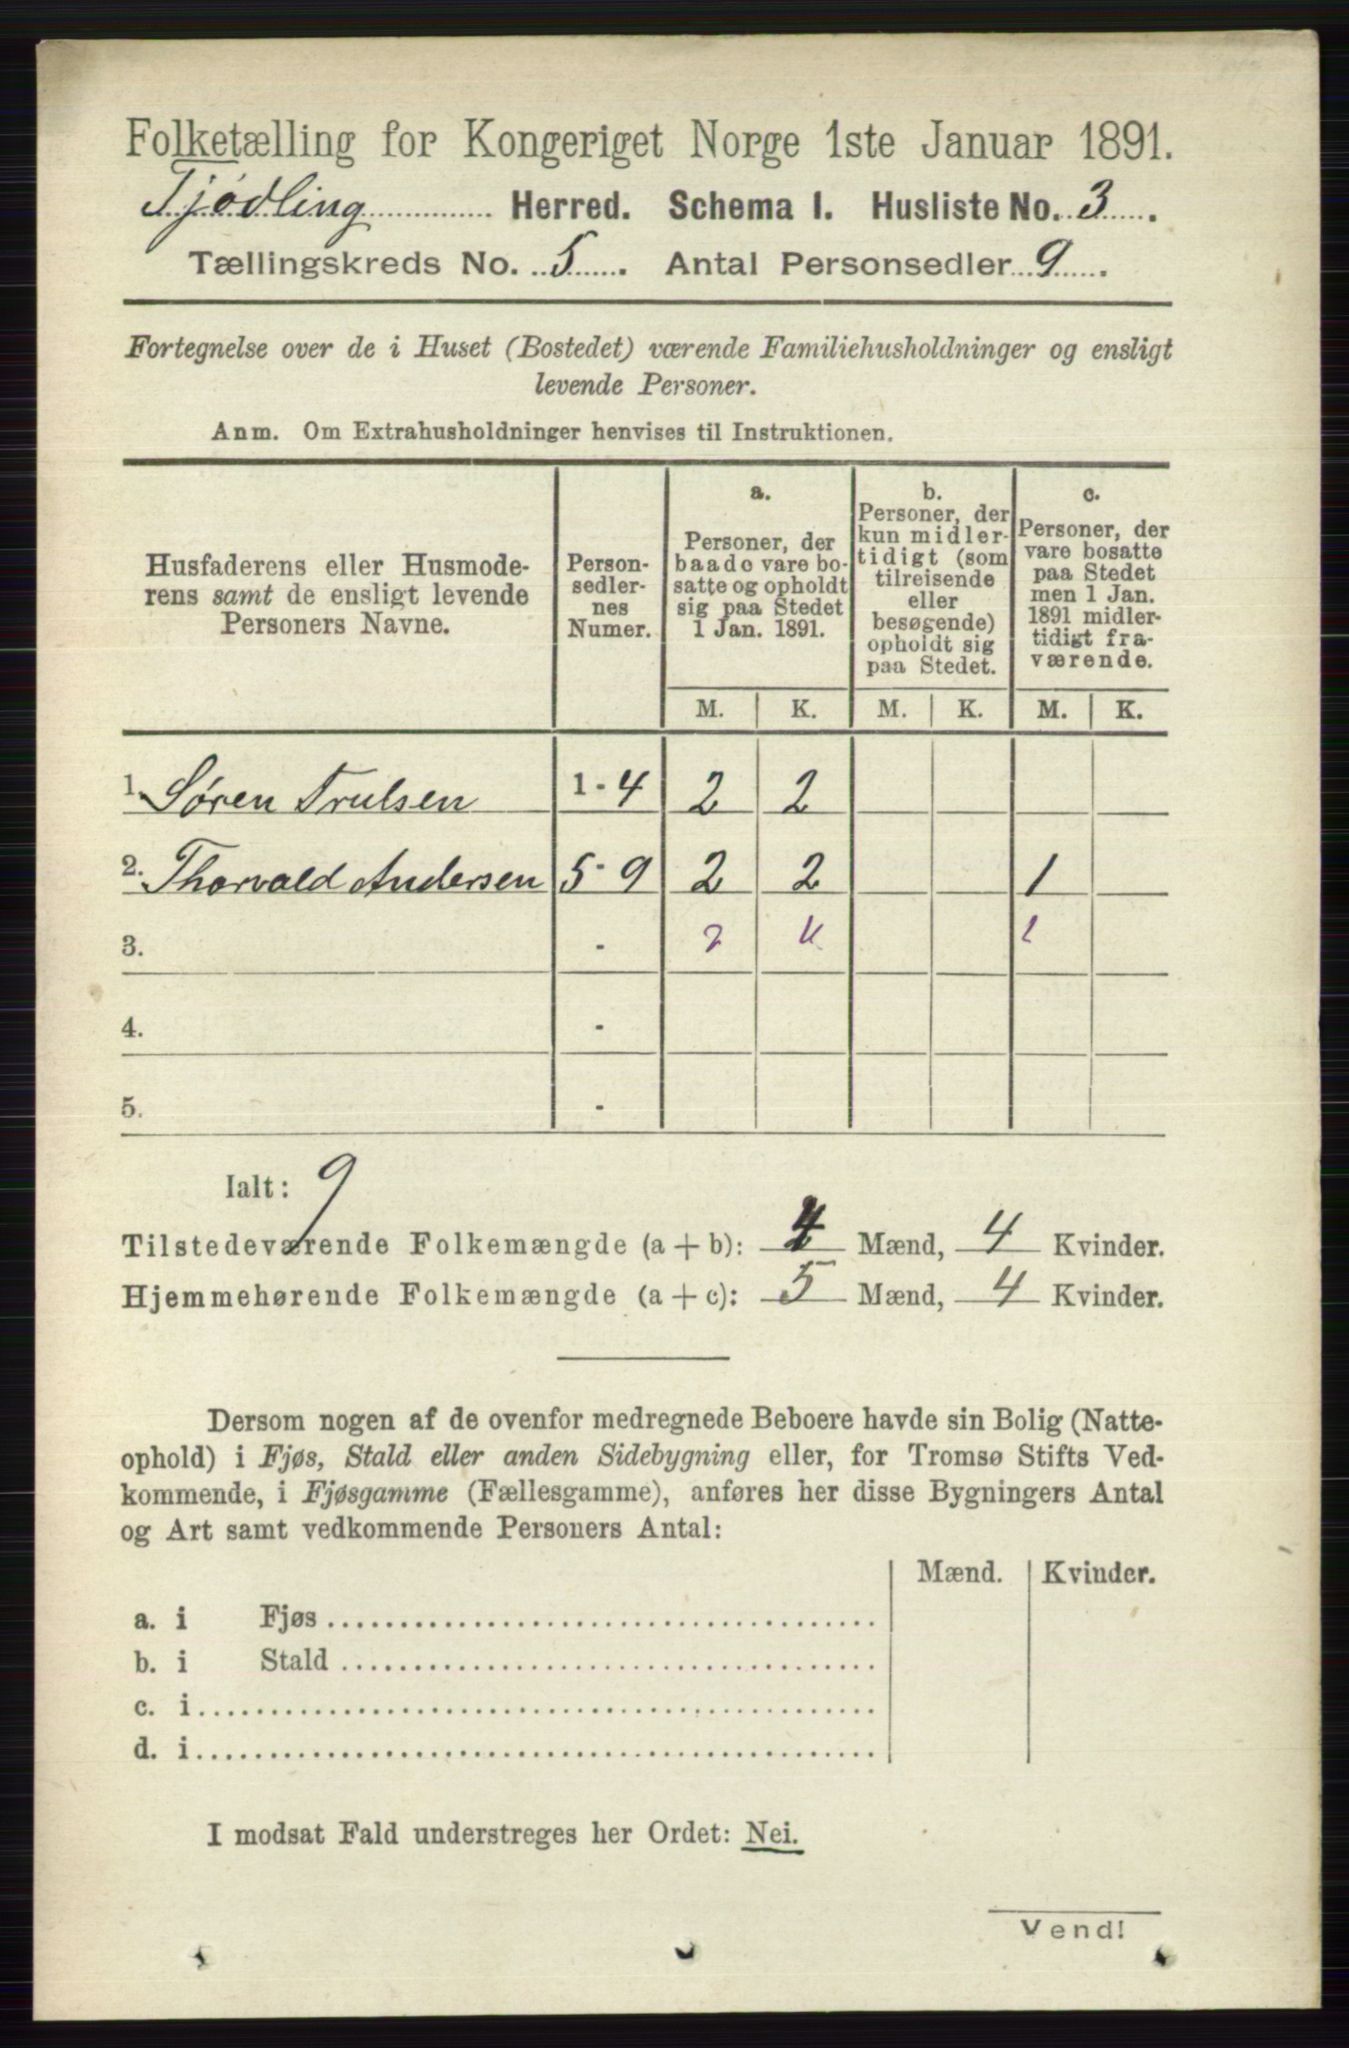 Folketælling for Kongeriget Norge 1ste Januar 1891.
Tjødling Herred. Schema I. Husliste No. 3.
Tællingskreds No. 5. Antal Personsedler 9.
Fortegnelse over de i Huset (Bostedet) værende Familiehusholdninger og ensligt
levende Personer.
Anm. Om Extrahusholdninger henvises til Instruktionen.
Husfaderens eller Husmode-
rens samt de ensligt levende
Personers Navne.
Person-
sedler-
nes
Numer.
a.
Personer, der
baade vare bo-
satte og opholdt
sig paa Stedet
1 Jan. 1891.
b.
Personer, der
kun midler-
tidigt (som
tilreisende
eller
besøgende)
opholdt sig
paa Stedet.
c.
Personer, der
vare bosatte
paa Stedet
men 1 Jan.
1891 midler-
tidigt fra-
værende.
M. K. M. K. M. K.
1. Søren Trulsen 1-4 2 2
2. Thorvald Andersen 5-9 2 2 1
3. -
4. -
5. -
Ialt: 9
Tilstedeværende Folkemængde (a + b): 4 Mænd, 4 Kvinder.
Hjemmehørende Folkemængde (a + c): 5 Mænd, 4 Kvinder.
Dersom nogen af de ovenfor medregnede Beboere havde sin Bolig (Natte-
ophold) i Fjøs, Stald eller anden Sidebygning eller, for Tromsø Stifts Ved-
kommende, i Fjøsgamme (Fællesgamme), anføres her disse Bygningers Antal
og Art samt vedkommende Personers Antal:
Mænd. Kvinder.
a. i Fjøs
b. i Stald
c. i
d. i
I modsat Fald understreges her Ordet: Nei.
Vend!